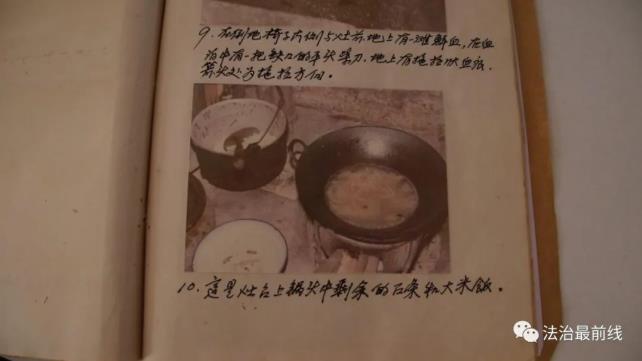 9. 在倒地椅子右侧与灶前地上有一滩鲜血,在血
泊中有一把缺口的平头柴刀,地上有拖拉状血痕.
箭头处为拖拉方向。
10. 这是灶台上锅头中剩余的石条和大米飯。
法治最前线